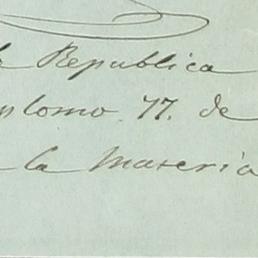 la Republica
tomo 77. de
la materia